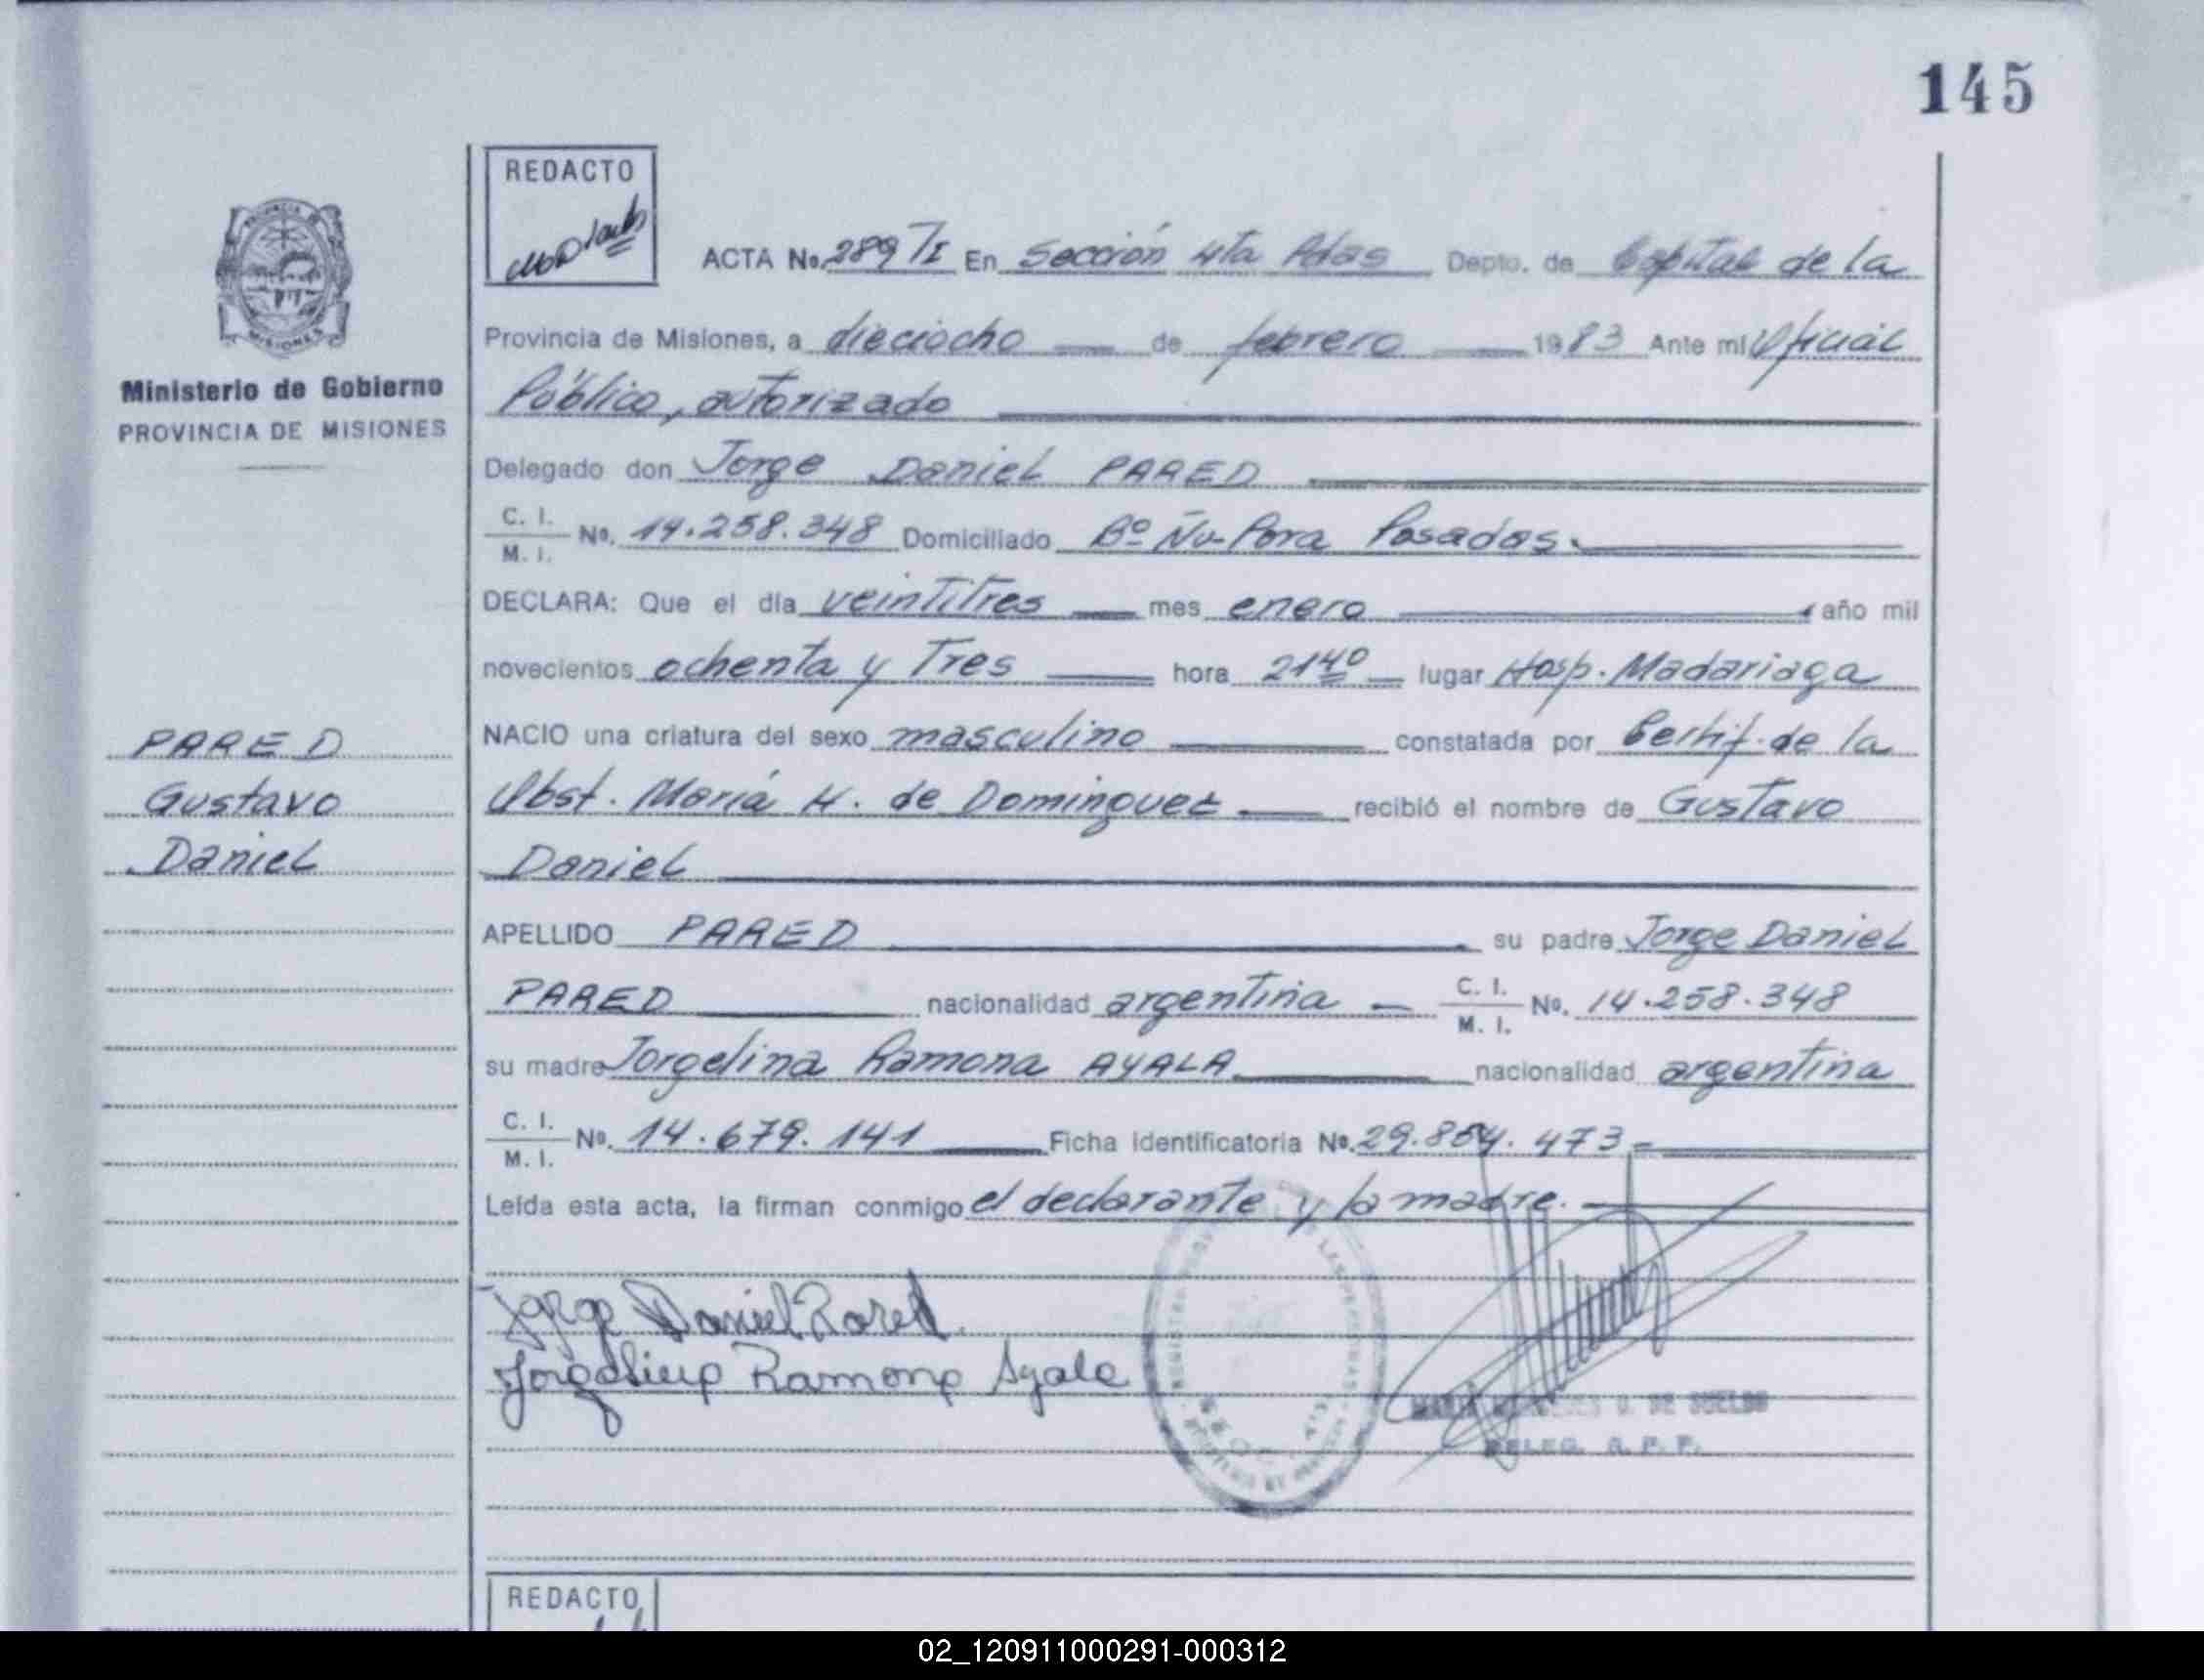 145
REDACTO
ACTA No. 289/I En Sección 4ta Pdas Depto. de Capital de la
Provincia de Misiones, a dieciocho de febrero 1983 Ante mi Oficial
Público, autorizado
Ministerio de Gobierno
PROVINCIA DE MISIONES
Delegado don Jorge Daniel PARED
C. I.
M. I. No. 14.258.348 Domiciliado Bº Ñu-Pora Posadas.
DECLARA: Que el día veintitres mes enero año mil
novecientos ochenta y Tres hora 21 40 lugar Hosp. Madariaga
NACIO una criatura del sexo masculino constatada por Certif. de la
Obst. María H. de Dominguez recibió el nombre de Gustavo
Daniel
PARED
Gustavo
Daniel
APELLIDO PARED su padre Jorge Daniel
PARED nacionalidad argentina C. I.
M. I. No. 14.258.348
su madre Jorgelina Ramona AYALA nacionalidad argentina
C. I.
M. I. No. 14.679.141 Ficha Identificatoria No. 29.854.473=
Leída esta acta, la firman conmigo el declarante y la madre.
Jorge Daniel Pared
Jorgelina Ramona Ayala
MARIA MERCEDES G. DE SUELDO
DELEG. R. P. P.
REDACTO
02_120911000291-000312